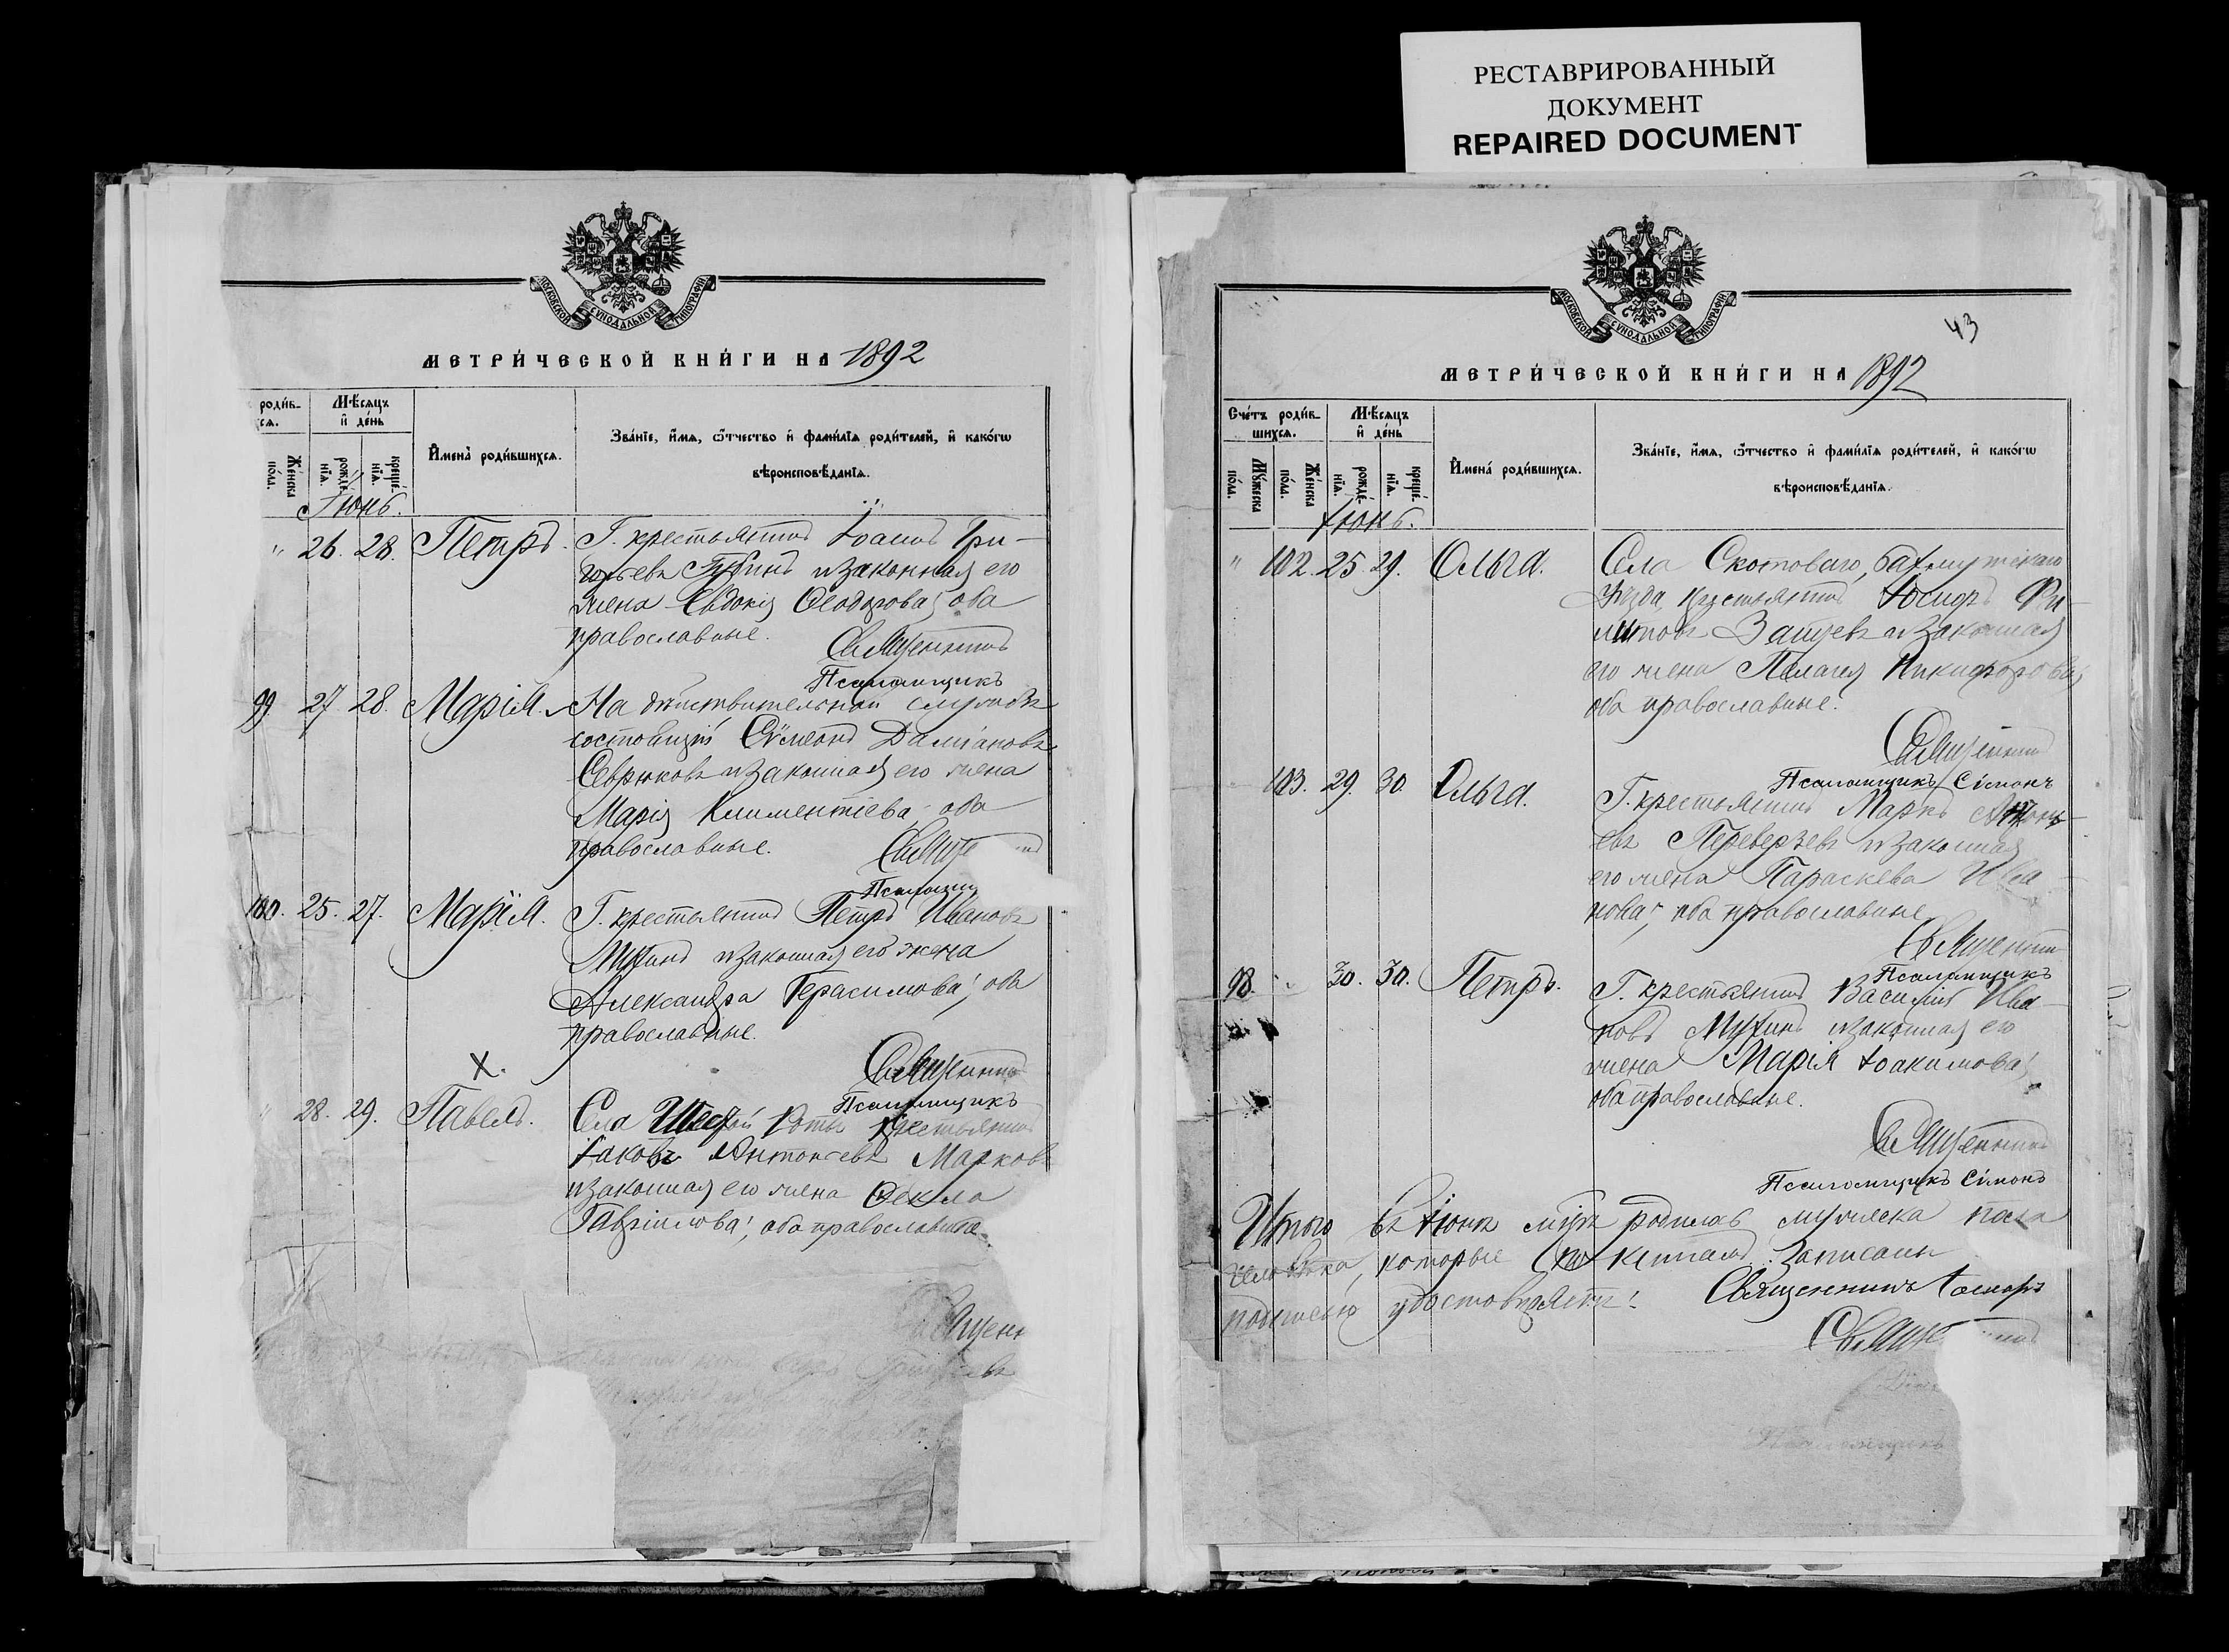 РЕСТАВРИРОВАННЫЙ
ДОКУМЕНТ
REPAIRED DOCUMENT
МОСКОВСКОЙ СУНОДАЛЬНОЙ ТИПОГРАФІИ
МЕТРИ́ЧЕСКОЙ КНИ́ГИ НА 1892
роди́в-
ся.
Мѣ́сяцъ
и҆ де́нь
И҆мена̀ роди́вшихся.
Зва́нїе, и҆́мя, ѻ҆́тчество и҆ фами́лїя роди́телей, и҆ како́гѡ
вѣроисповѣ́данїя.
Же́нска по́ла.
рожде́нїя.
креще́нїя.
Іюнь.
" 26. 28. Петръ. Г. крестьянинъ Іоаннъ Гри-
горьевъ и законная его
жена Евдокія Ѳеодорова, оба
православные.
Священникъ
Псаломщикъ
99. 27. 28. Марія. На дѣйствительной службѣ
состоящій Сѵмеонъ Даміановъ
Севрюковъ и законная его жена
Марія Климентіева, оба
православные.
Псаломщи
100. 25. 27. Марія. Г. крестьянинъ Петръ Ивановъ
Мухинъ и законная его жена
Александра Герасимова, оба
православные.
Священникъ
Х.
Псаломщикъ
28. 29. Павелъ. Села Шестой Роты крестьянинъ
Іаковъ Антоніевъ Марковъ
и законная его жена Ѳекла
Гавріилова, оба православные.
МОСКОВСКОЙ СУНОДАЛЬНОЙ ТИПОГРАФІИ
43
МЕТРИ́ЧЕСКОЙ КНИ́ГИ НА 1892
Сче́тъ роди́в-
шихся.
Мѣ́сяцъ
и҆ де́нь
И҆мена̀ роди́вшихся.
Зва́нїе, и҆́мя, ѻ҆́тчество и҆ фами́лїя роди́телей, и҆ како́гѡ
вѣроисповѣ́данїя.
Мꙋ́жеска по́ла.
Же́нска по́ла.
рожде́нїя.
креще́нїя.
Іюнь.
" 102. 25. 29. Ольга. Села Скотоваго, Бахмутскаго
уѣзда, крестьянинъ Іосифъ Фи-
липовъ и законная
его жена Пелагея Никифорова,
оба православные.
Священникъ
Псаломщикъ Сімонъ
103. 29. 30. Ольга. Г. крестьянинъ Маркъ
евъ Переверзевъ и законная
его жена Параскева Ива-
нова, оба православные
Священник
Псаломщикъ
98. " 30. 30. Петръ. Г. крестьянинъ Василій Ива-
новъ Мухинъ и законная его
жена Марія Іоакимова,
оба православные.
Священникъ
Псаломщикъ Сімонъ
Итого въ Іюнѣ мѣсяцѣ родилось мужеска пола
человѣка, которые записаны
подписью удостовѣряетъ. Священникъ Іосифъ